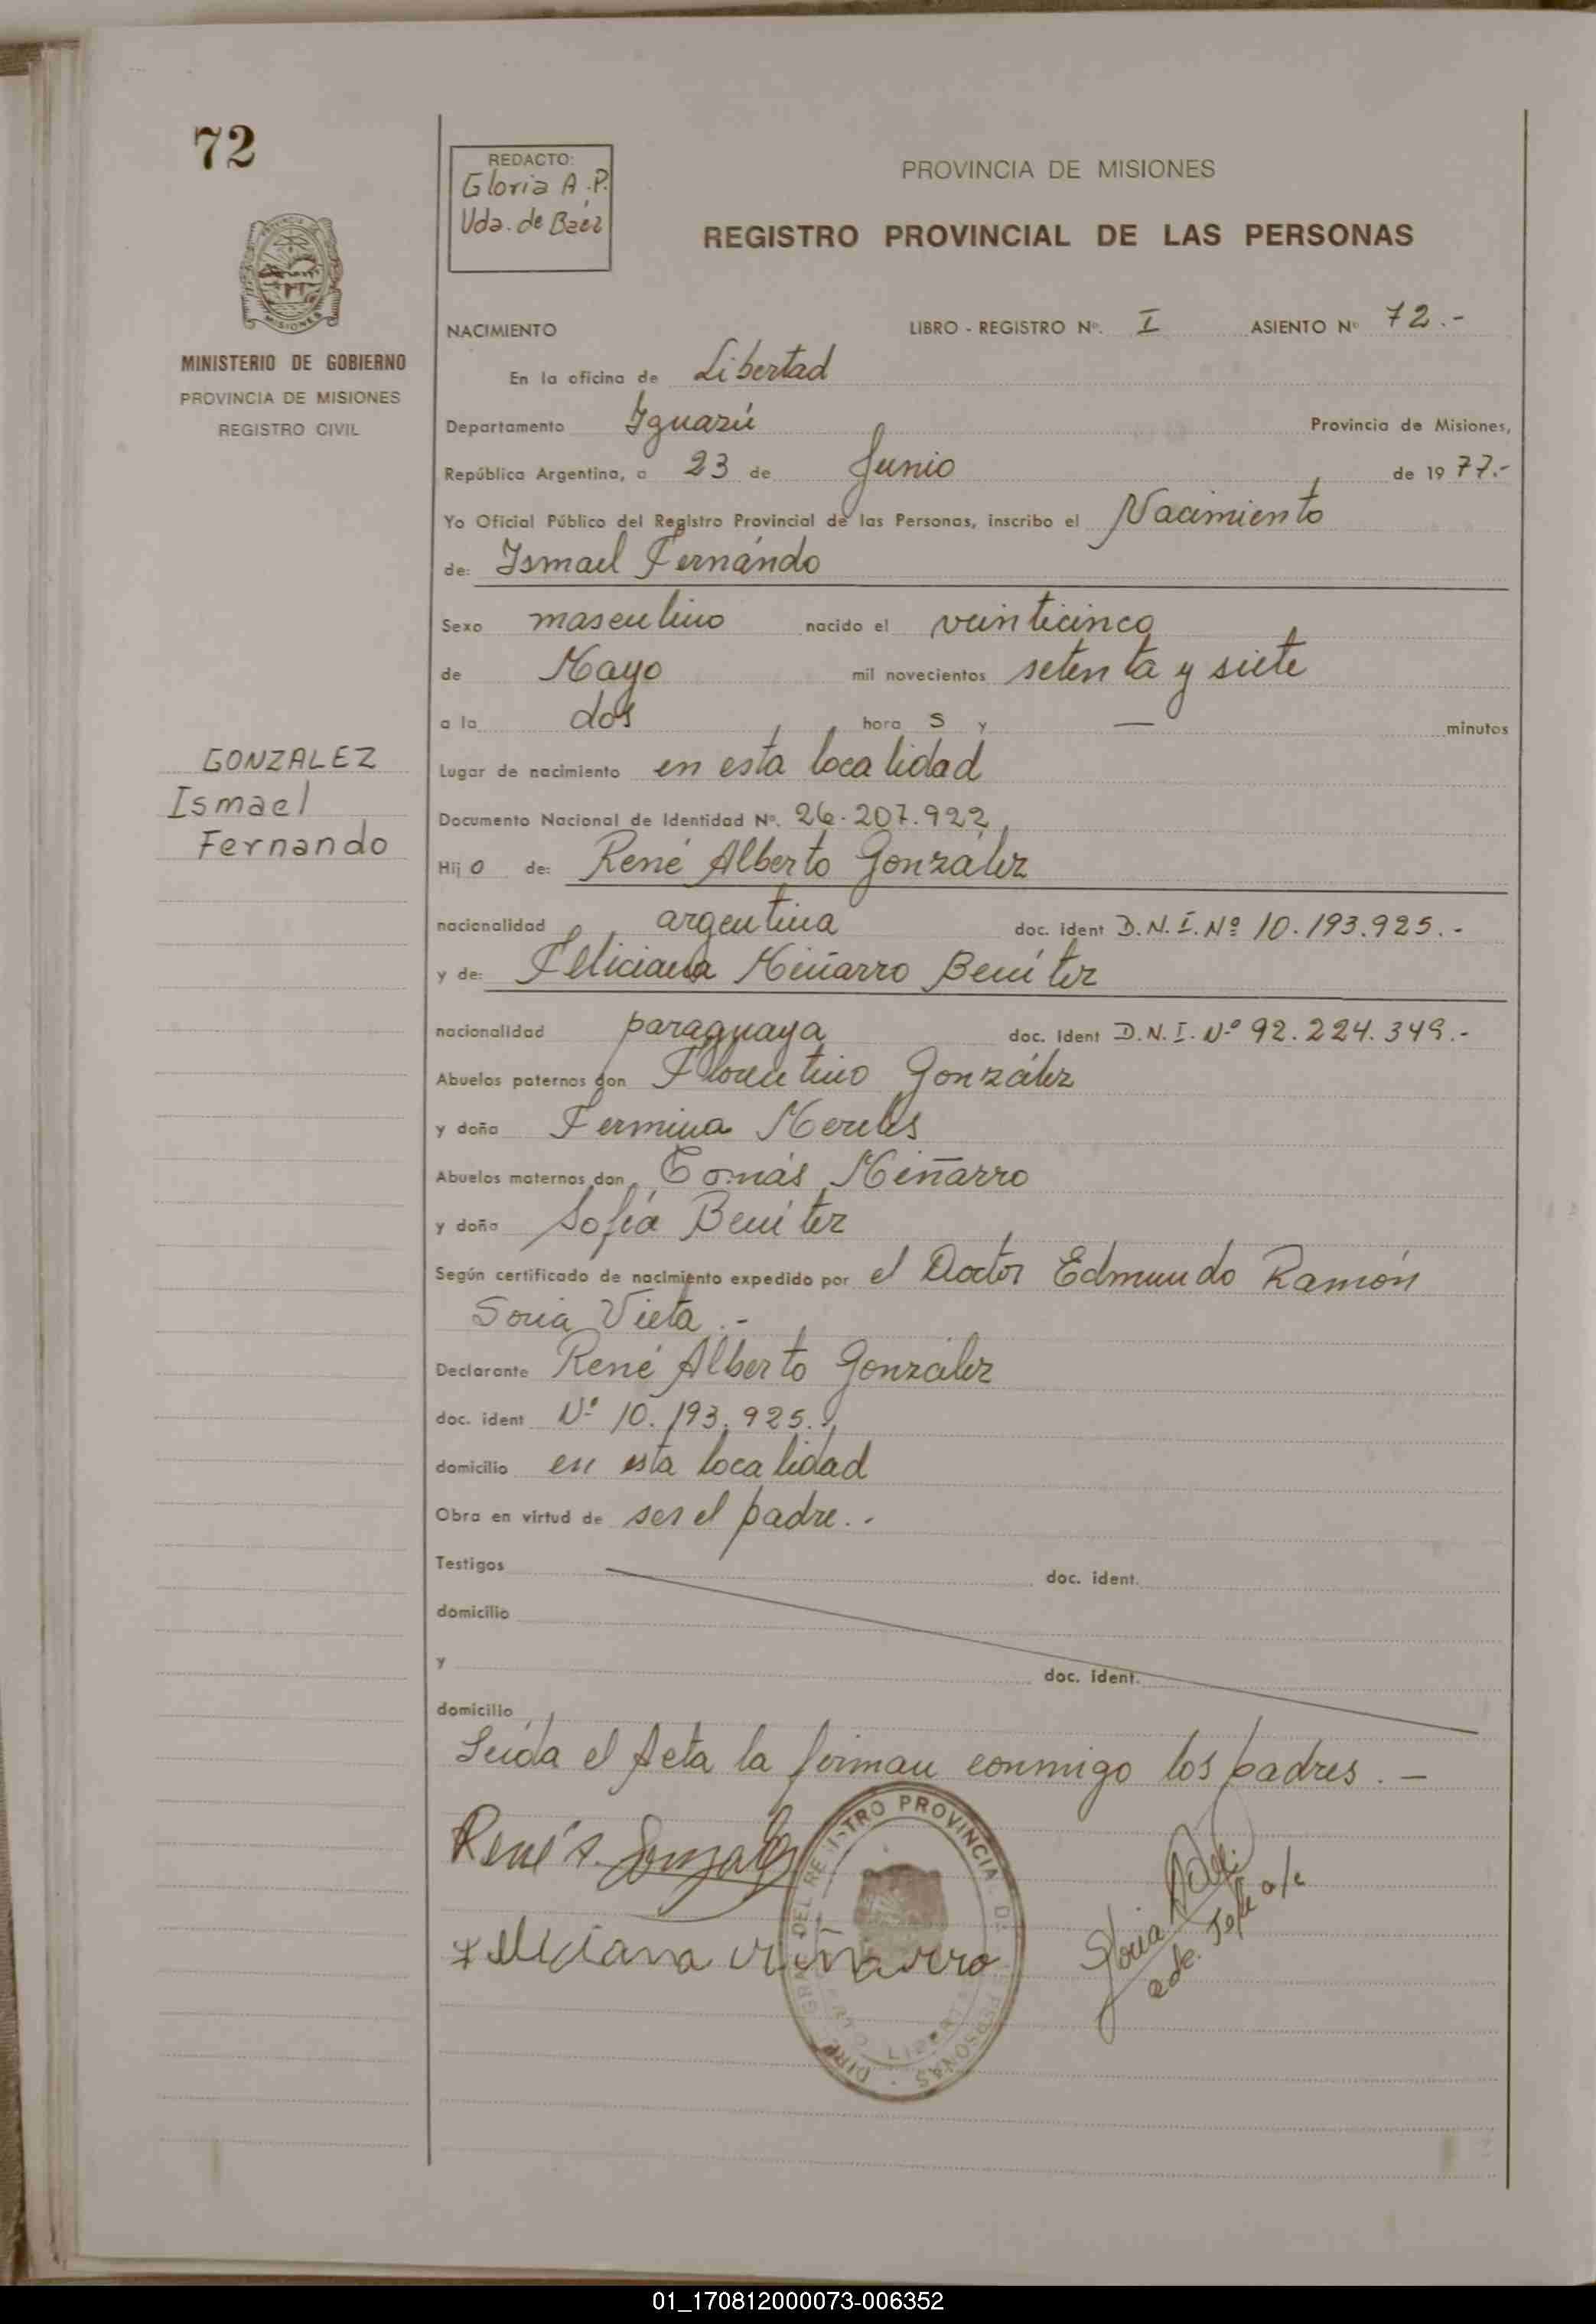 72
REDACTO:
Gloria A. P.
Vda. de Baéz
PROVINCIA DE MISIONES
REGISTRO PROVINCIAL DE LAS PERSONAS
MISIONES
MINISTERIO DE GOBIERNO
PROVINCIA DE MISIONES
REGISTRO CIVIL
NACIMIENTO LIBRO - REGISTRO Nº. I ASIENTO Nº 72.-
En la oficina de Libertad
Departamento Iguazú Provincia de Misiones,
República Argentina, a 23 de Junio de 1977.-
Yo Oficial Público del Registro Provincial de las Personas, inscribo el Nacimiento
de: Ismael Fernándo
Sexo masculino nacido el veinticinco
de Mayo mil novecientos setenta y siete
a la dos hora s y — minutos
GONZALEZ
Ismael
Fernando
Lugar de nacimiento en esta localidad
Documento Nacional de Identidad Nº. 26.207.922
Hijo de: René Alberto González
nacionalidad argentina doc. ident D.N.I. Nº 10.193.925.-
y de: Feliciana Miñarro Benítez
nacionalidad paraguaya doc. Ident D.N.I. Nº 92.224.349.-
Abuelos paternos don Florentino González
y doña Fermina Mereles
Abuelos maternos don Tomás Miñarro
y doña Sofía Benítez
Según certificado de nacimiento expedido por el Doctor Edmundo Ramón
Soria Vieta.-
Declarante René Alberto González
doc. ident Nº 10.193.925.
domicilio en esta localidad
Obra en virtud de ser el padre.-
Testigos doc. ident.
domicilio
y doc. ident.
domicilio
Leída el Acta la firman conmigo los padres.—
René A. Gonzalez
Feliciana Miñarro